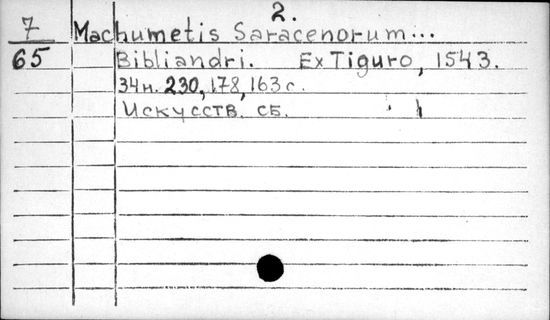 2.
7 Machumetis Saracenorum...
65 Bibliandri. Ex Tiguro, 1543.
34н. 230, 178, 163 с.
Искусств. сб.